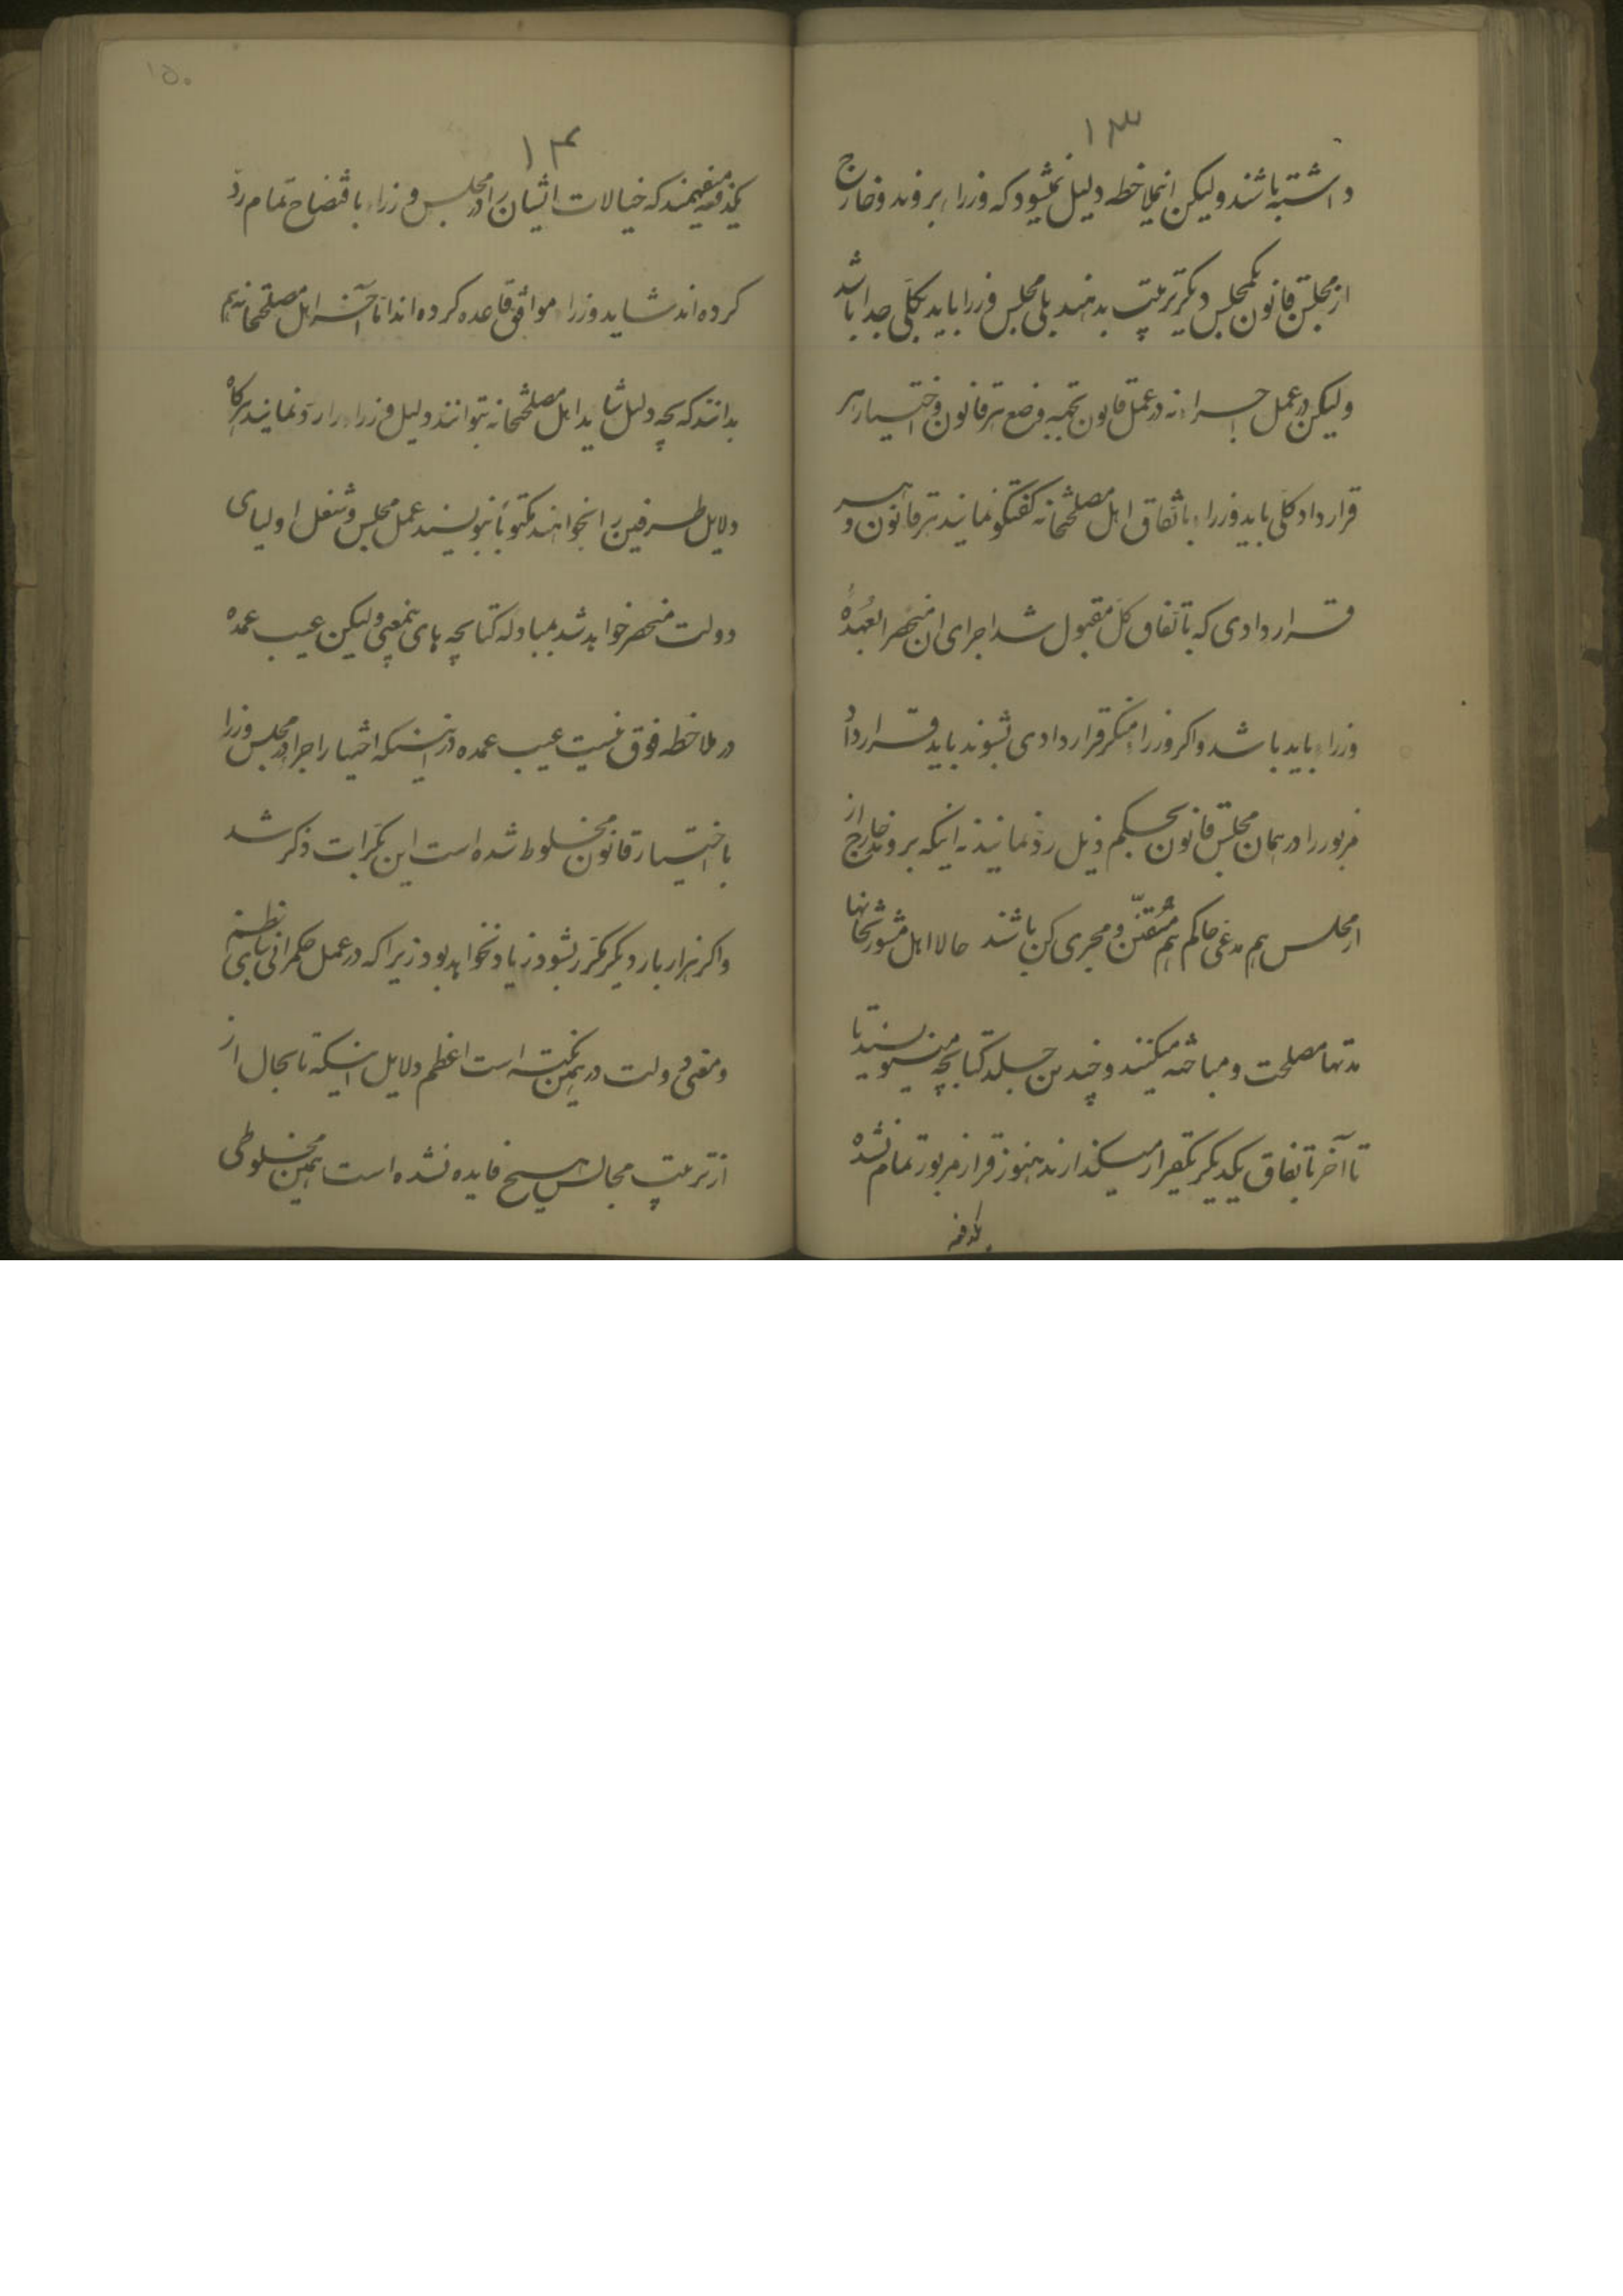 ۱۳
داشته باشند ولیکن اینملاحظه دلیل نمیشود که وزراء بروند و خارج
از مجلس قانون یکمجلس دیگر ترتیب بدهند بلی مجلس وزرا باید بکلی جدا باشد
ولیکن در عمل اجراء نه در عمل قانون بجهه وضع هر قانون و اختیار هر
قرارداد کلی باید وزراء باتفاق اهل مصلحتخانه گفتگو نمایند هر قانون و هر
قراردادی که باتفاق کل مقبول شد اجرای ان منحصر العهدهٔ
وزراء باید باشد و اگر وزراء منکر قراردادی بشوند باید قرارداد
مزبور را در همان مجلس قانون بحکم دلیل رد نمایند نه اینکه بروند خارج از
ازمجلس هم مدعی حاکم هم مُقنّن و مجری کن باشند حالا اهل مشورتخانها
مدتها مصلحت و مباحثه میکنند و چندین جلد کتابچه مینویسند تا
تا آخر باتفاق یکدیگر یکقرار میگذارند هنوز قرار مزبور تمام نشده
یکدفعه
۱۵۰
۱۴
یکدفعه میفهمند که خیالات ایشان را در مجلس وزراء بافتضاح تمام ردّ
کرده‌اند شاید وزراء موافق قاعده کرده‌اند اما آخر اهل مصلحتخانه هم
بدانند که بچه دلیل شاید اهل مصلحتخانه بتوانند دلیل وزراء را ردّ نمایند هرگاه
دلایل طرفین را بخواهند مکتوباً بنویسند عمل مجلس و شغل اولیای
دولت منحصر خواهد شد بمبادله کتابچه های بیمعنی ولیکن عیب عمده
در ملاحظه فوق نیست عیب عمده در اینستکه اختیار اجرا در مجلس وزرا
با اختیار قانون مخلوط شده است این بکرات ذکر شد
و اگر هزار بار دیگر مکرر بشود زیاد نخواهد بود زیرا که در عمل حکمرانی بنای نظم
و معنی دولت در همین نکته است اعظم دلایل اینکه تا بحال از
از ترتیب مجالس هیچ فایده نشده است همین مخلوطی